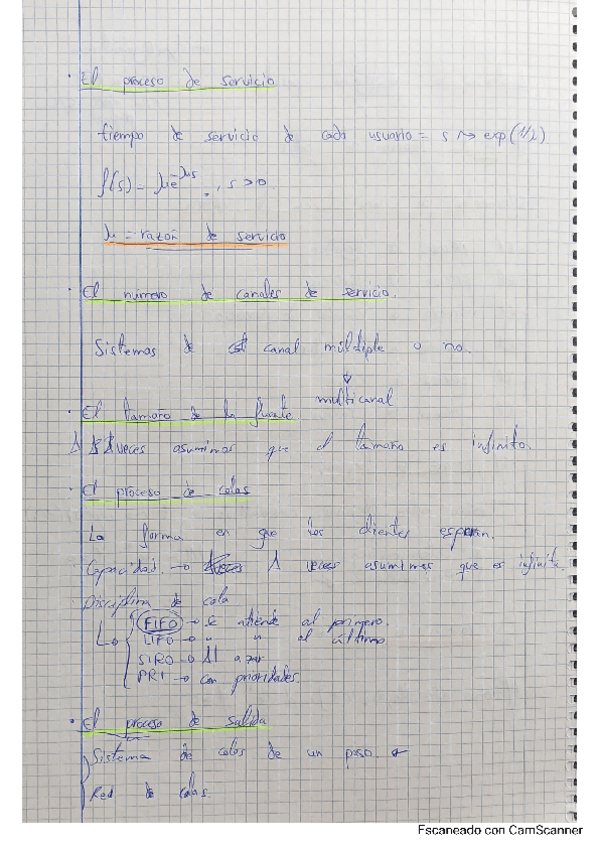 · El proceso de servicio
tiempo de servicio de cada usuario = s ↝ exp(1/λ)
f(s) = μe^-μs, s>0
μ = razón de servicio
· El número de canales de servicio.
Sistemas de canal múltiple o no.
↓
multicanal
· El tamaño de la fuente
A veces asumimos que el tamaño es infinito.
· El proceso de colas
La forma en que los clientes esperan.
Capacidad → A veces asumimos que es infinita.
Disciplina de cola
↳ { FIFO → se atiende al primero.
LIFO → " " al último
SIRO → Al azar
PRI → con prioridades.
· El proceso de salida
Sistema de colas de un paso.
Red de colas.
Escaneado con CamScanner